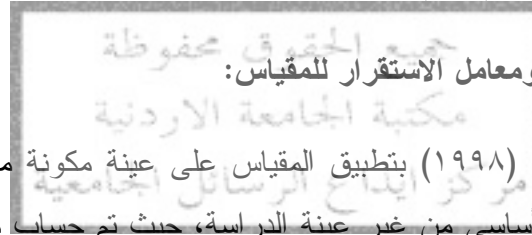 جميع الحقوق محفوظة
ومعامل الاستقرار للمقياس:
مكتبة الجامعة الاردنية
(١٩٩٨) بتطبيق المقياس على عينة مكونة
مركز ايداع الرسائل الجامعية
من غير عينة الدراسة، حيث تم حساب